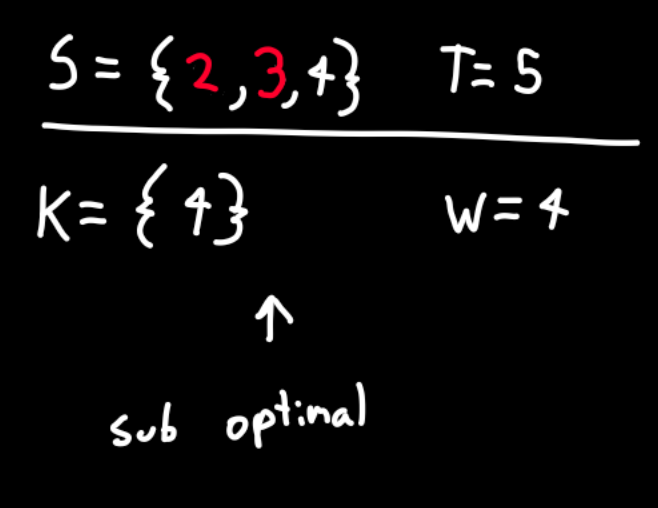 S = {2,3,4} T= 5
K= {4} W= 4
↑
sub optimal